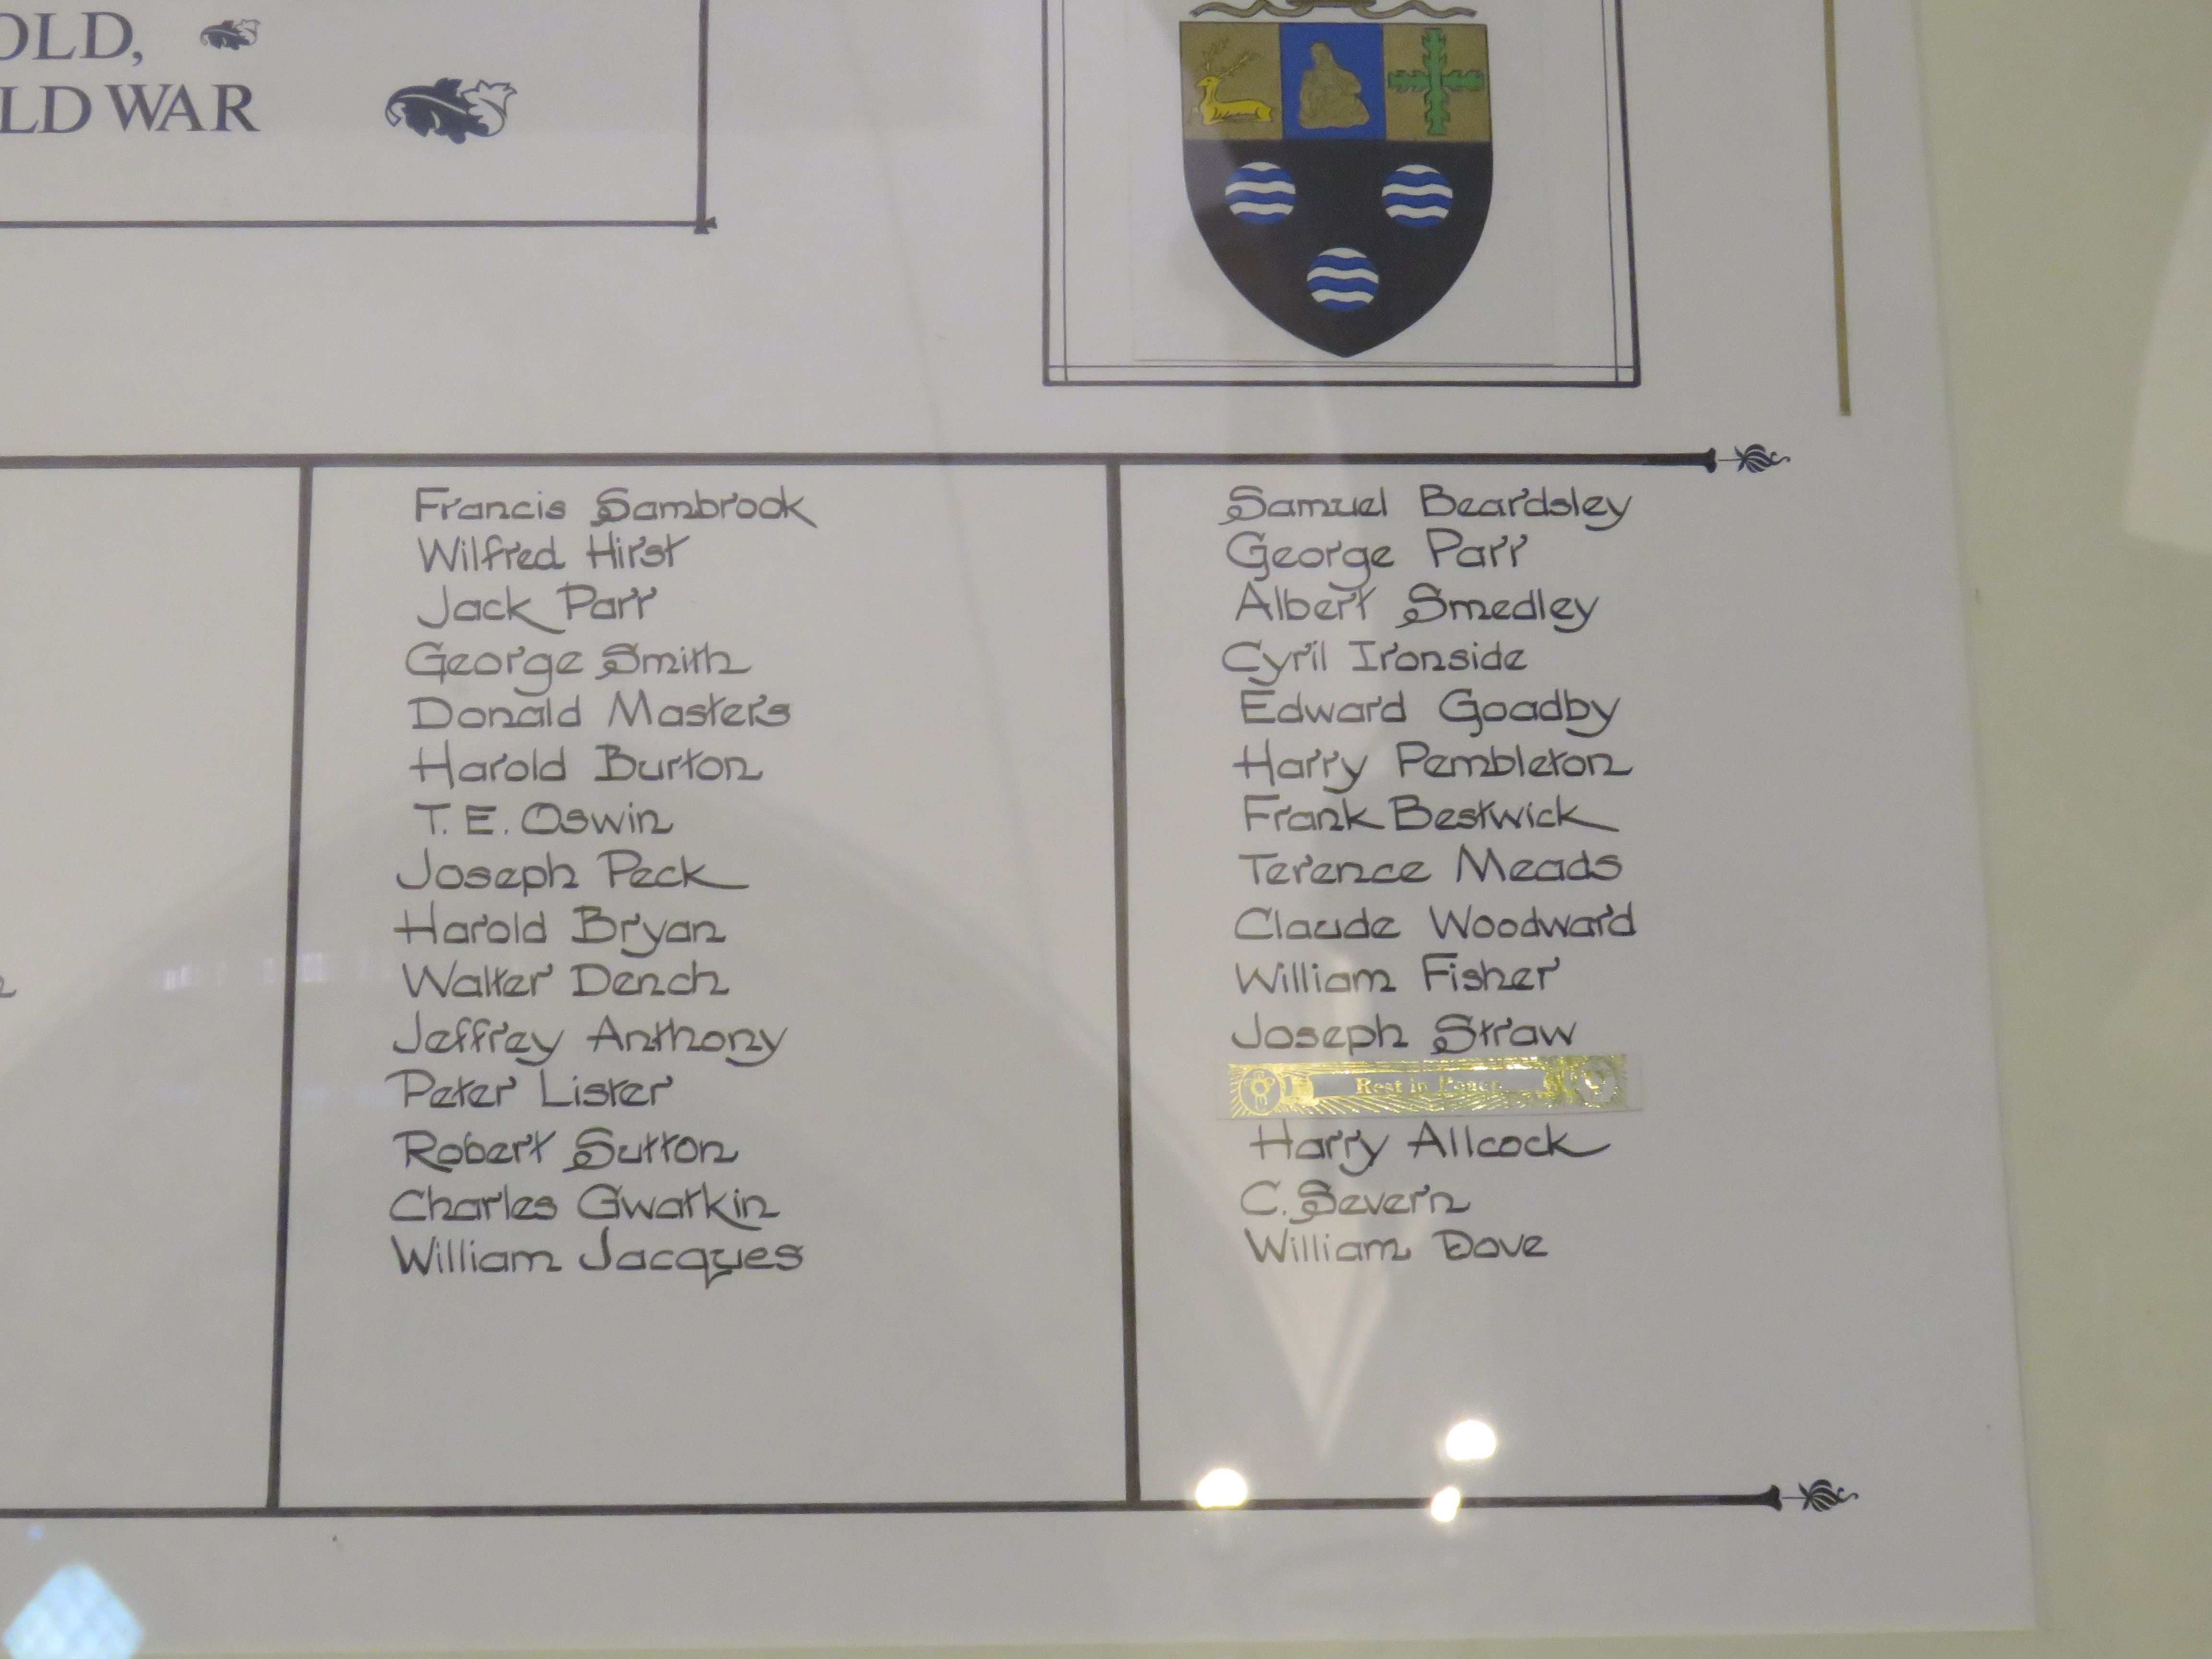 OLD,
LD WAR
Francis Sambrook
Wilfred Hirst
Jack Parr
George Smith
Donald Masters
Harold Burton
T. E. Oswin
Joseph Peck
Harold Bryan
Walter Dench
Jeffrey Anthony
Peter Lister
Robert Sutton
Charles Gwatkin
William Jacques
Samuel Beardsley
George Parr
Albert Smedley
Cyril Ironside
Edward Goadby
Harry Pembleton
Frank Bestwick
Terence Meads
Claude Woodward
William Fisher
Joseph Straw
Rest in Peace
Harry Allcock
C. Severn
William Dove